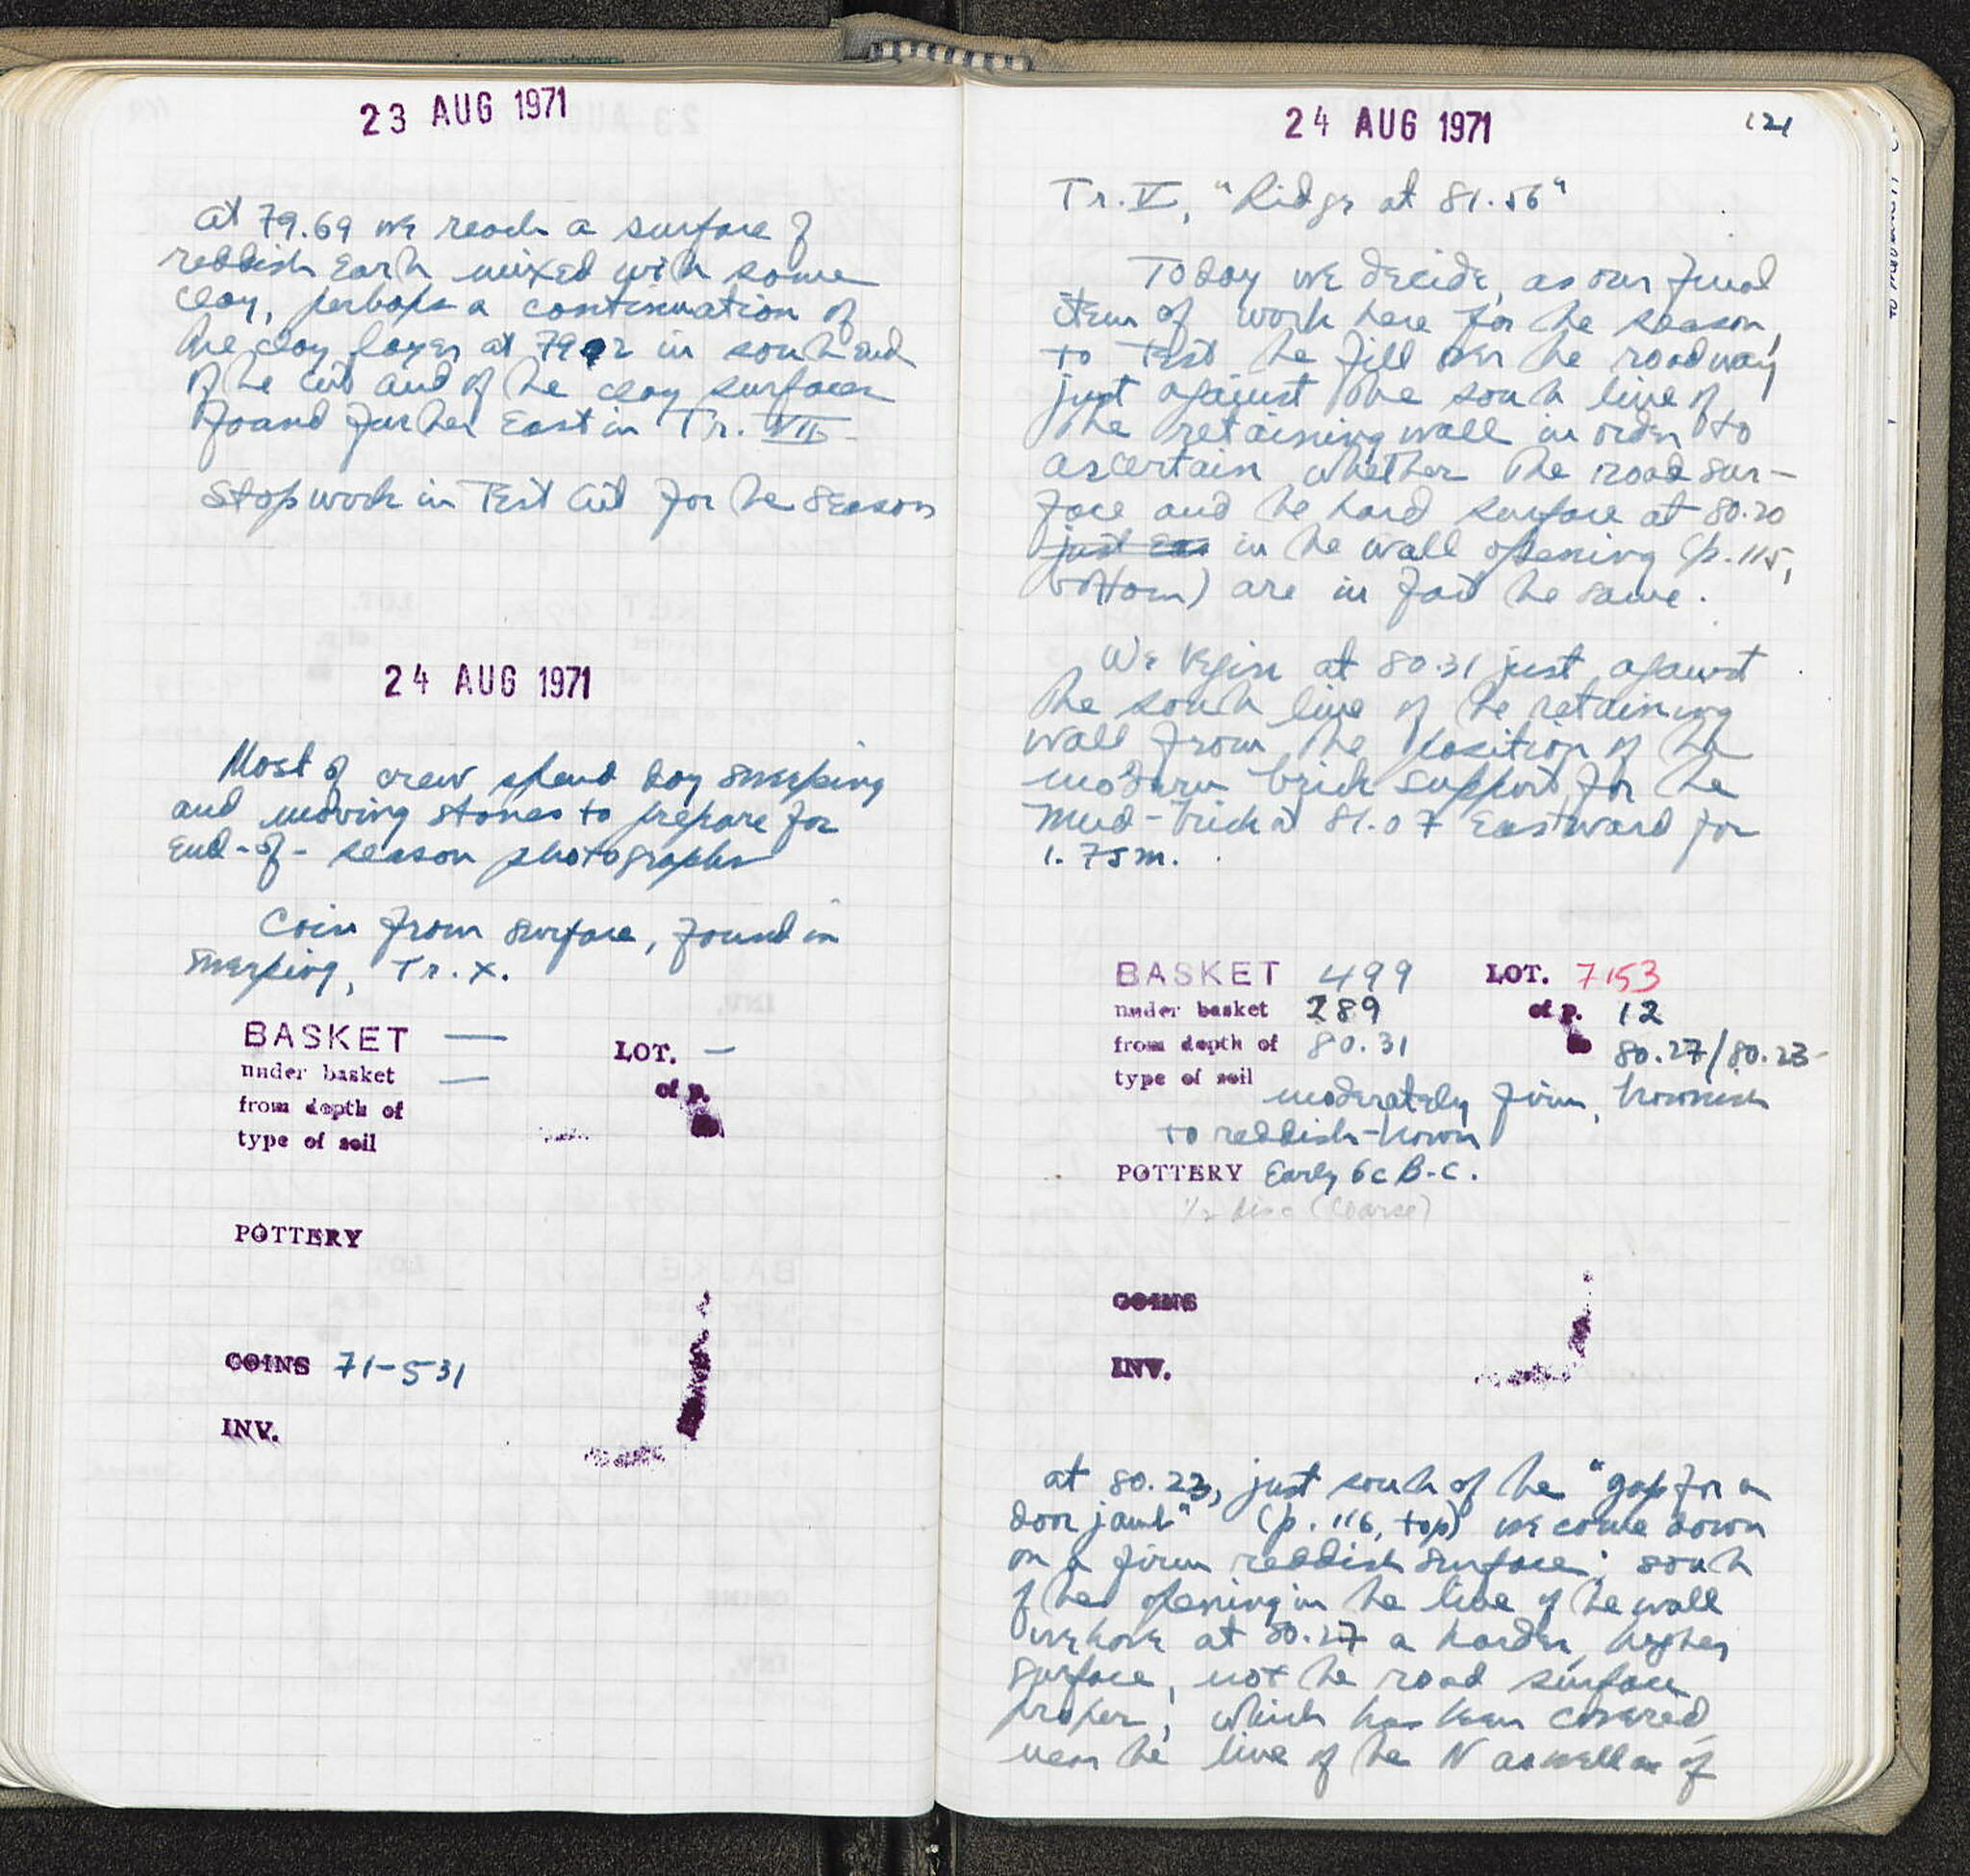 23 AUG 1971
at 79.69 we reach a surface of
reddish earth mixed with some
clay, perhaps a continuation of
the clay layer at 79.92 in south end
of the cut and of the clay surfaces
found further East in Tr. VII
Stop work in Test Cut for the season
24 AUG 1971
Most of crew spend day sweeping
and moving stones to prepare for
end-of-season photographs
Coin from surface, found in
sweeping, Tr. X.
BASKET — LOT. —
under basket — of p.
from depth of
type of soil
POTTERY
COINS 71-531
INV.
24 AUG 1971 121
Tr. V, "Ridge at 81.56"
Today we decide, as our final
item of work here for the season,
to test the fill over the roadway
just against the south line of
the retaining wall in order to
ascertain whether the road sur-
face and the hard surface at 80.20
just Eas in the wall opening (p. 115,
bottom) are in fact the same.
We begin at 80.31 just against
the south line of the retaining
wall from the position of the
modern brick support for the
mud-brick at 81.07 Eastward for
1.75m.
BASKET 499 LOT. 7153
under basket 289 of p. 12
from depth of 80.31 80.27/80.23
type of soil moderately firm, brownish
to reddish-brown
POTTERY Early 6c B.C.
1/2 disc (coarse)
COINS
INV.
at 80.23, just south of the "gap for a
door jamb" (p. 116, top) we come down
on a firm reddish surface; south
of the opening in the line of the wall
we have at 80.27 a harder, higher
surface, not the road surface
proper, which has been covered
near the line of the N as well as of